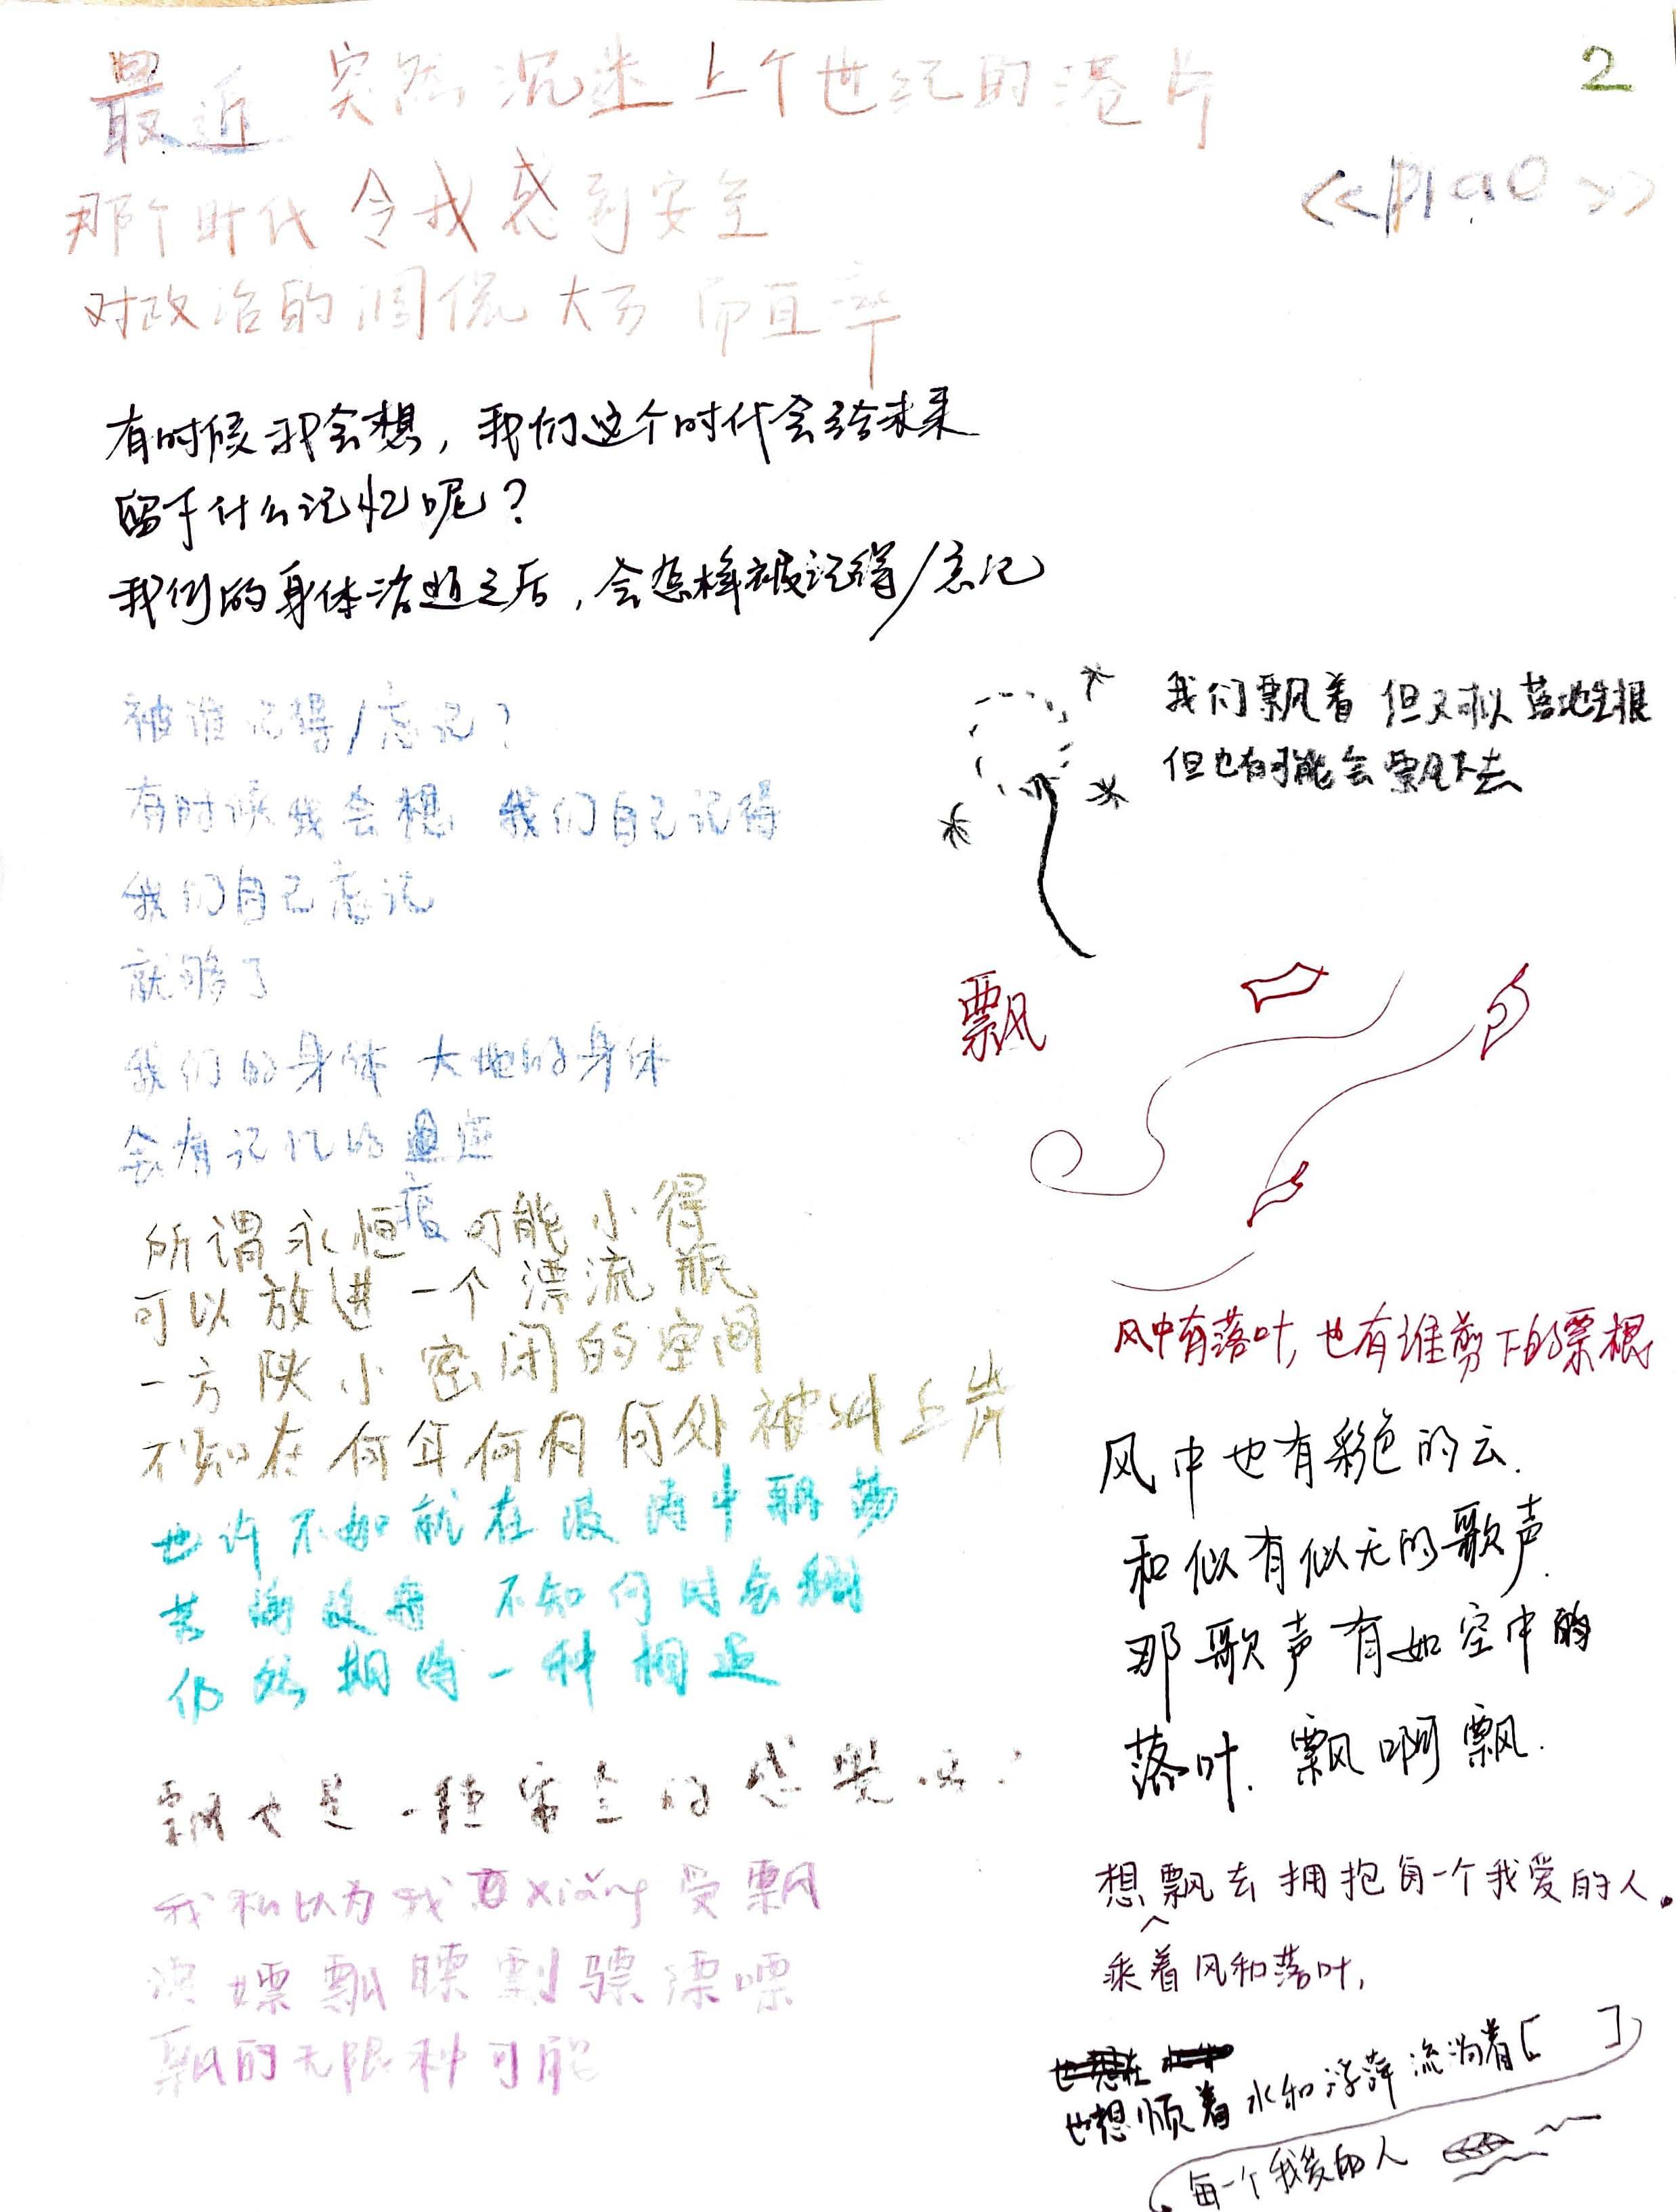 2
<<piao>>
最近 突然沉迷上个世纪的港片
那个时代 令我感到安全
对政治的调侃 大方 而直率
有时候我会想，我们这个时代会给未来
留下什么记忆呢？
我们的身体消逝之后，会怎样被记得/忘记
被谁记得/忘记？
有时候我会想 我们自己记得
我们自己忘记
就够了
我们的身体 大地的身体
会有记忆的
痕
所谓永恒 可能小得
可以放进一个漂流瓶
一方狭小密闭的空间
不知在何年何月何处被冲上岸
也许不如就在浪涛中飘荡
不知何时会翻
仍然期待一种相遇
飘也是一种安全的感觉吗？
我私以为我 xiǎng 受飘
漂 嫖 飘 瞟 剽 骠 漂 嘌
飘的无限种可能
我们飘着 但又可以落地生根
但也有可能会飘下去
飘
风中有落叶，也有谁剪下的票根
风中也有彩色的云.
和似有似无的歌声.
那歌声有如空中的
落叶. 飘啊飘.
想飘去拥抱每一个我爱的人。
^
乘着风和落叶,
也想在
也想顺着水和浮萍 流淌着[ ]
每一个我爱的人